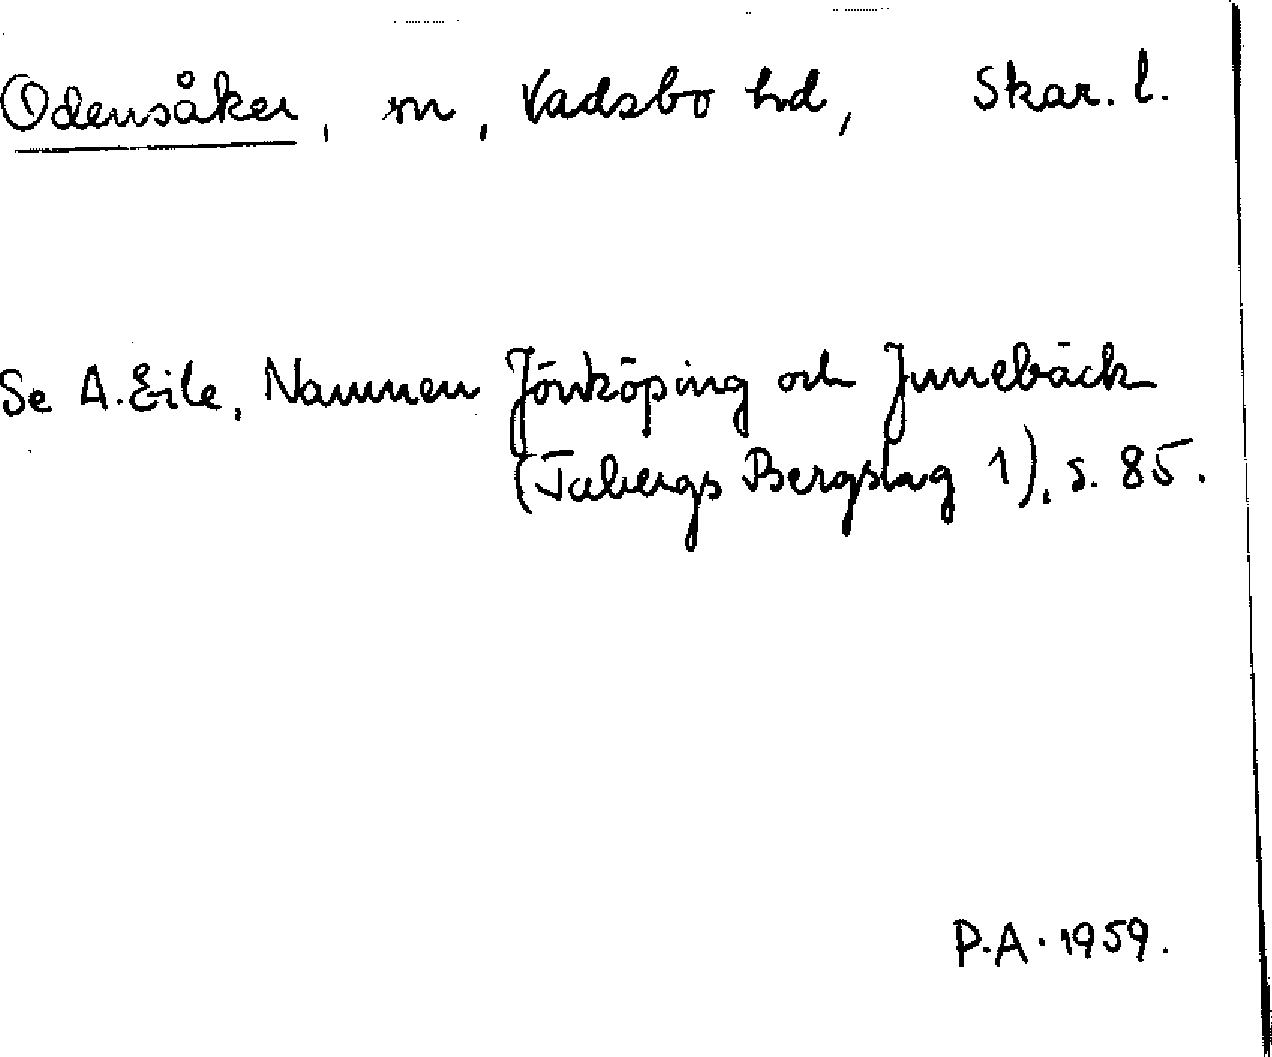 Odensåker, sn, Vadsbo hd, Skar. l.
Se A. Eile, Namnen Jönköping och Junebäck
(Tabergs Bergslag 1), s. 85.
P.A. 1959.